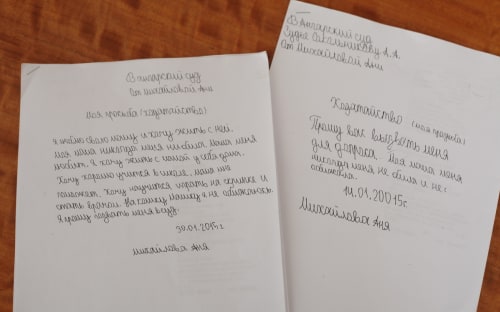 В ангарский суд
От Михайловой Ани
Моя просьба (ходатайство)
Я люблю свою маму и хочу жить с ней.
Моя мама никогда меня не била. Мама меня
любит. Я хочу жить с мамой у себя дома.
Хочу хорошо учиться в школе, мама мне
помогает. Хочу научиться играть на скрипке и
стать врачом. На сестру Машу я не обижаюсь.
Я прошу позвать меня в суд.
30.01.2015г.
Михайлова Аня
В Ангарский суд
Судье Сокольникову А.А.
От Михайловой Ани
Ходатайство (моя просьба)
Прошу вас вызвать меня
для допроса. Моя мама меня
никогда не била и не
обижала.
14.01.20015г.
Михайлова Аня